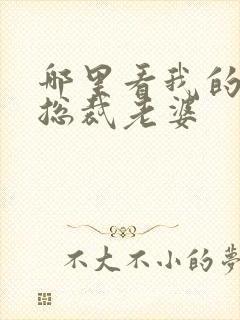 哪里看我的
总裁老婆
不大不小的夢